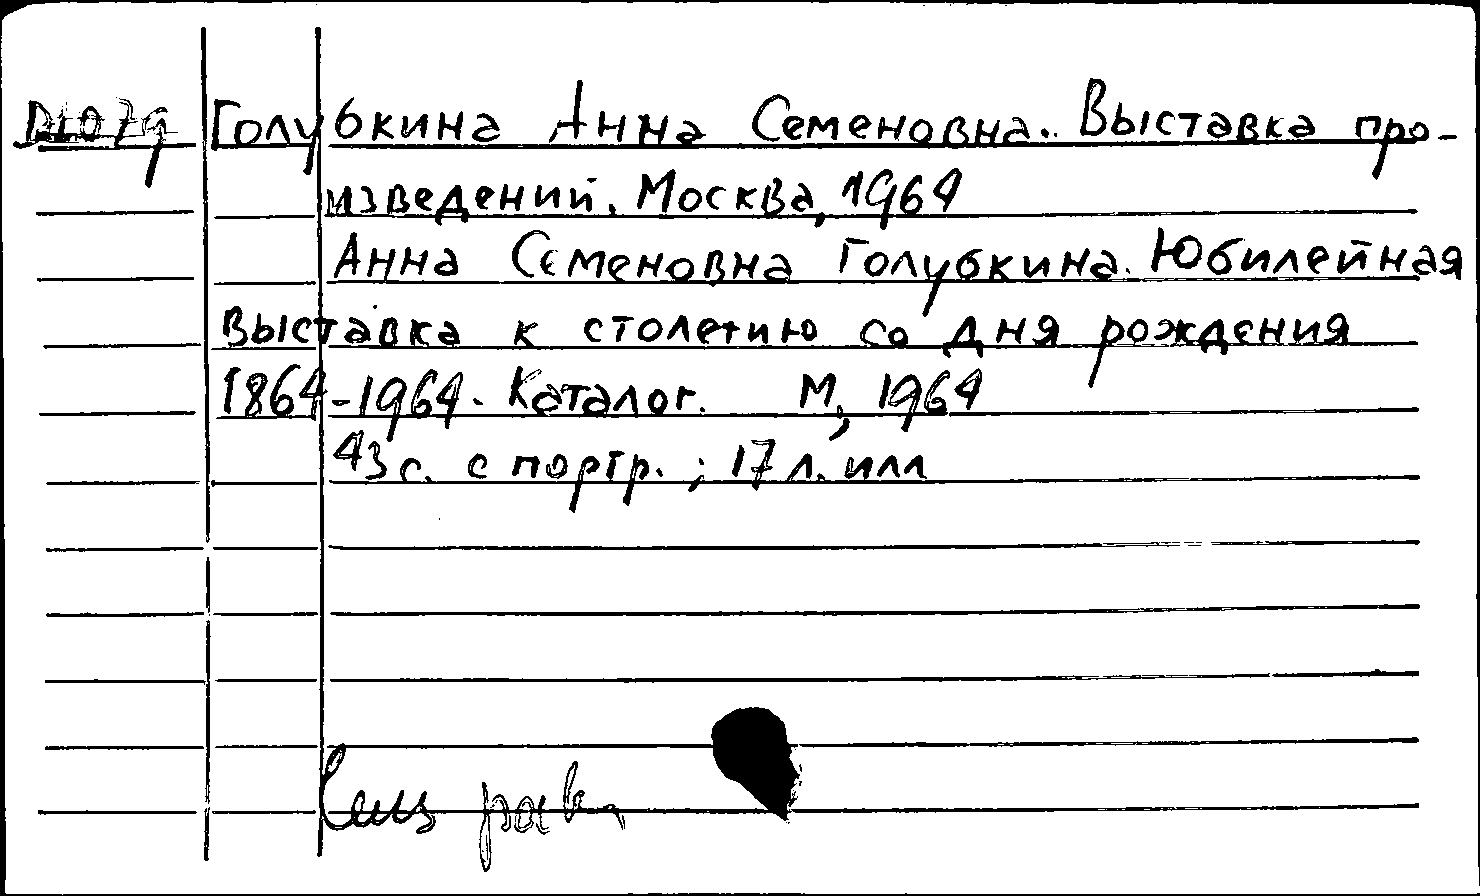 Голубкина Анна Семеновна.. Выставка про-
изведений. Москва, 1964
Анна Семеновна Голубкина. Юбилейная
выставка к столетию со дня рождения
1864-1964. Каталог. М, 1964
43 с. с портр. ; 17 л. илл